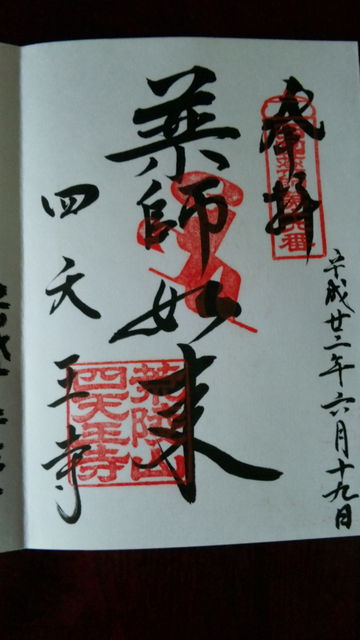 奉拝
平成廿二年六月十九日
薬師如来
四天王寺
四天王寺